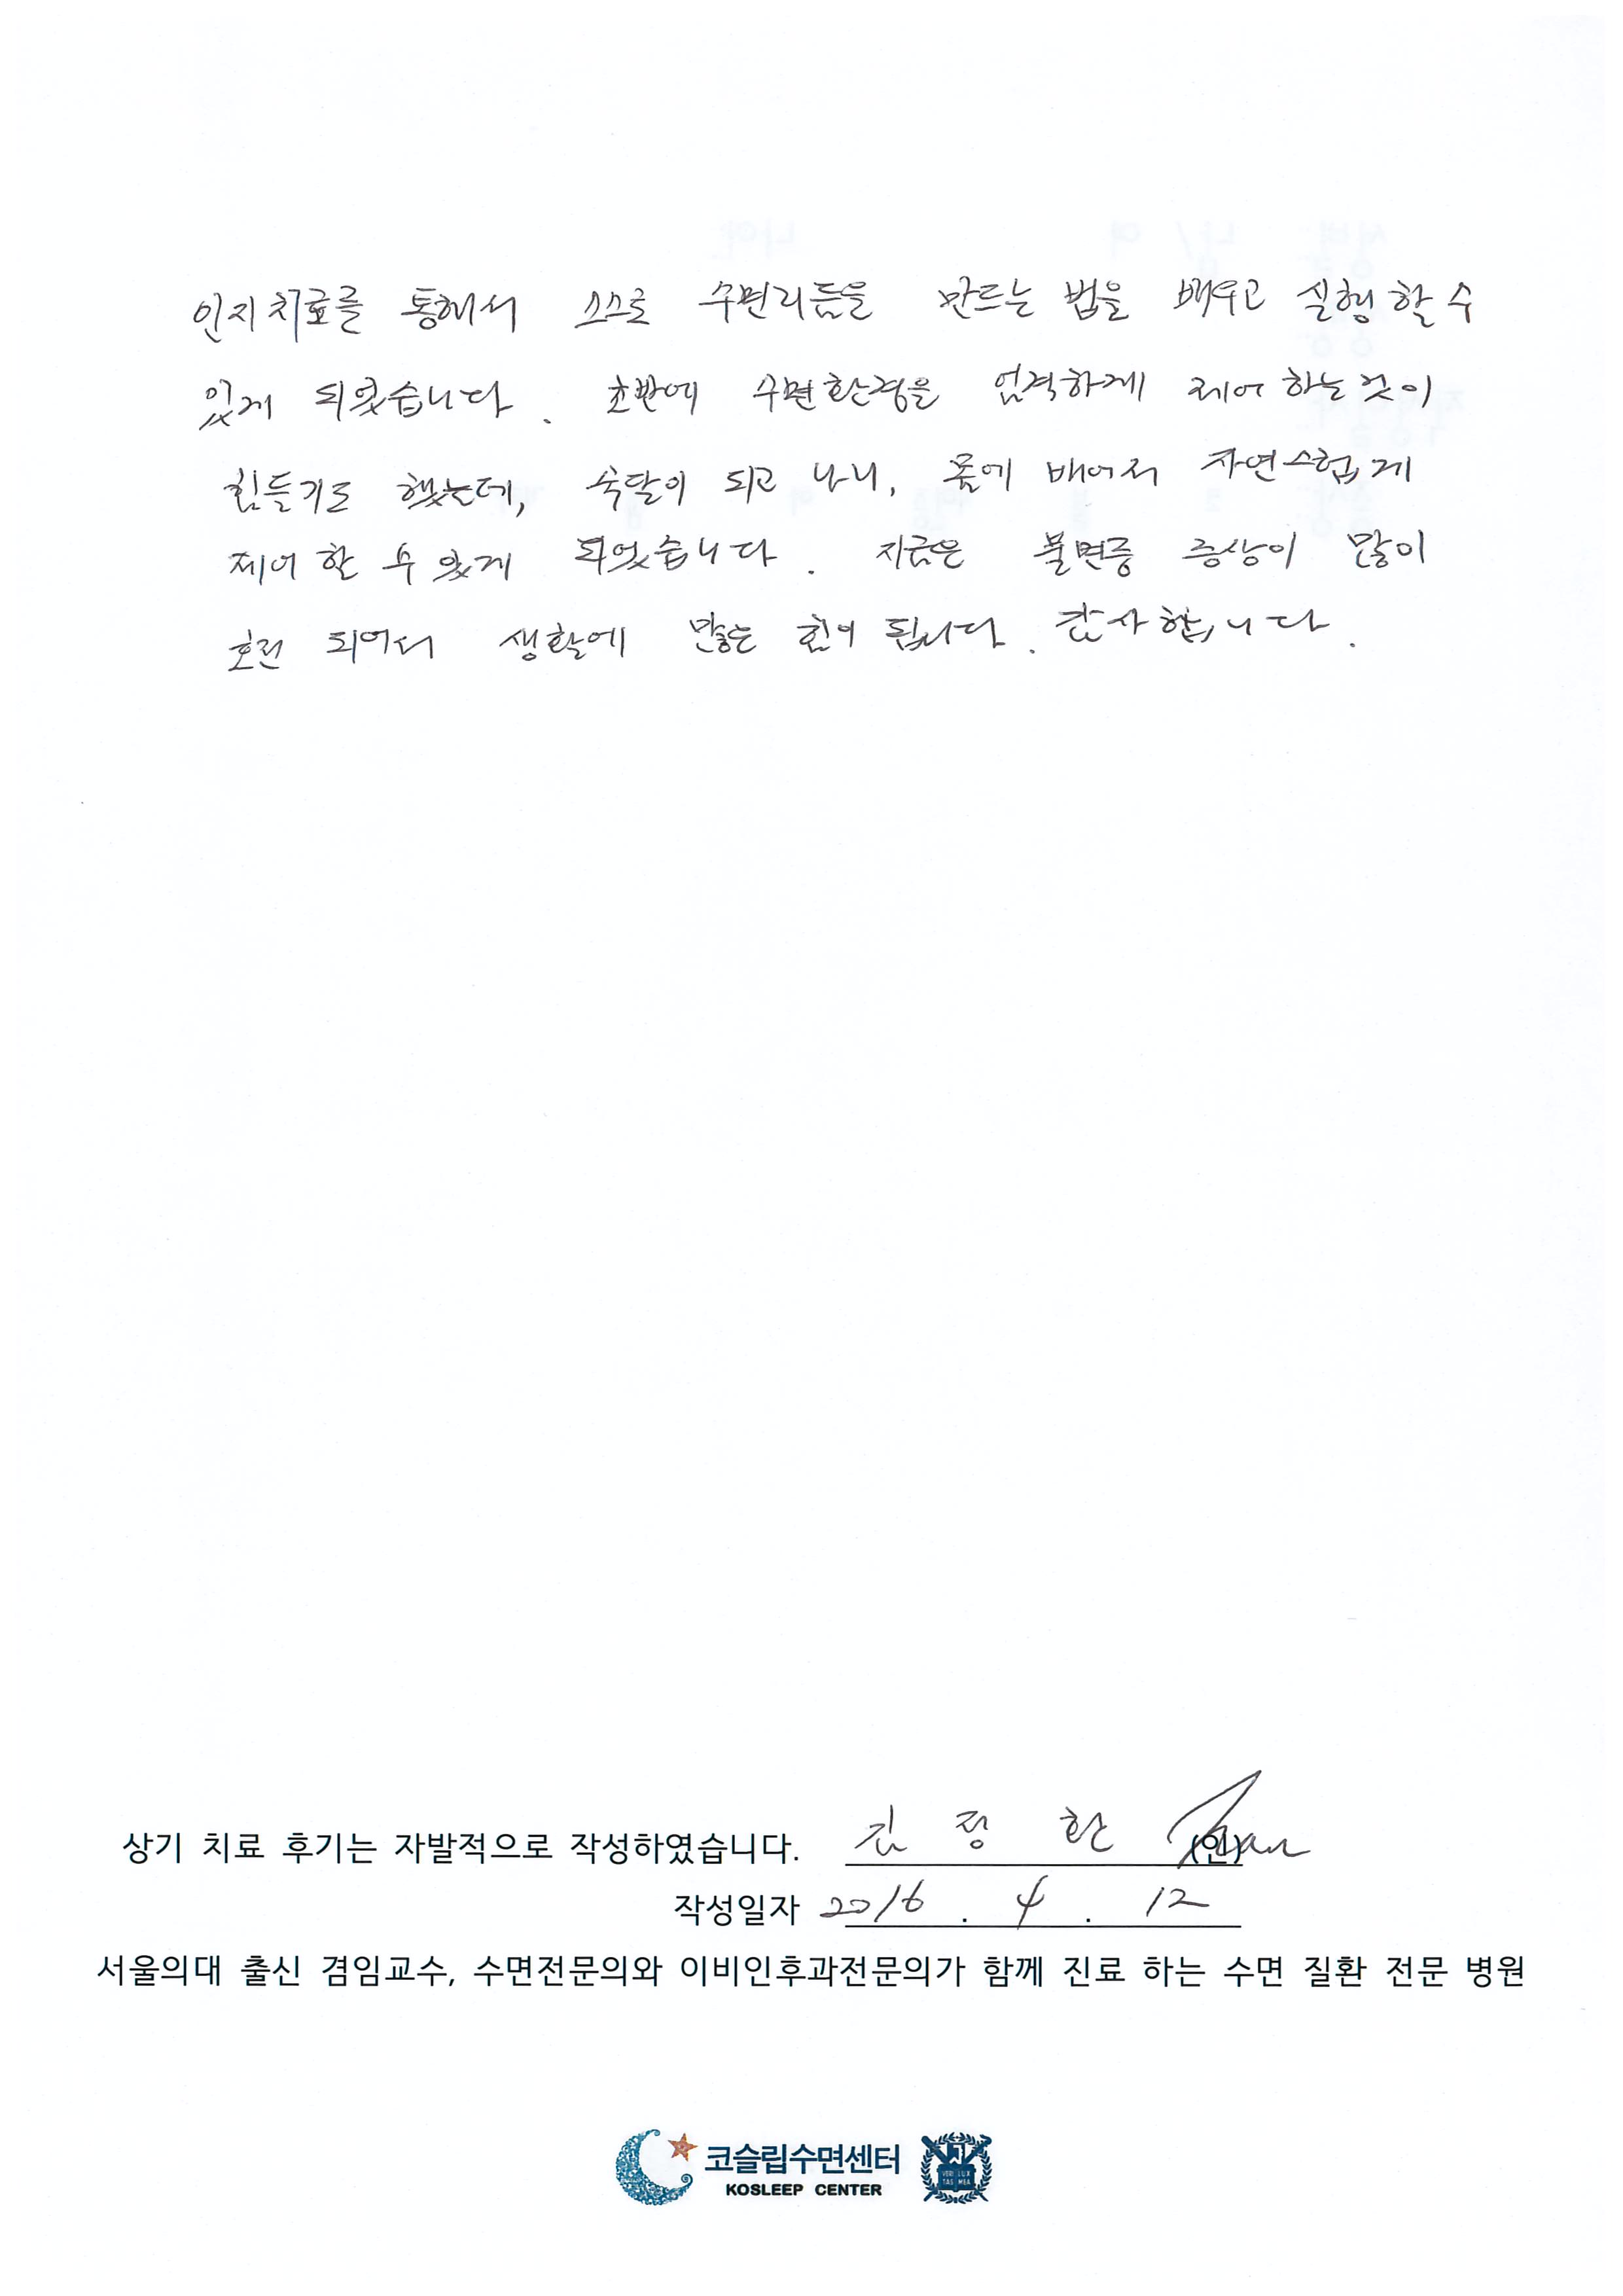 인지치료를 통해서 스스로 수면리듬을 만드는 법을 배우고 실행할 수
있게 되었습니다. 초반에 수면환경을 엄격하게 제어 하는것이
힘들기도 했는데, 숙달이 되고 나니, 몸에 배어져 자연스럽게
제어 할 수 있게 되었습니다. 지금은 불면증 증상이 많이
호전 되어서 생활에 많은 힘이 됩니다. 감사합니다.
상기 치료 후기는 자발적으로 작성하였습니다. 김 정 환 (인)
작성일자 2016 . 4 . 12
서울의대 출신 겸임교수, 수면전문의와 이비인후과전문의가 함께 진료 하는 수면 질환 전문 병원
코슬립수면센터
KOSLEEP CENTER